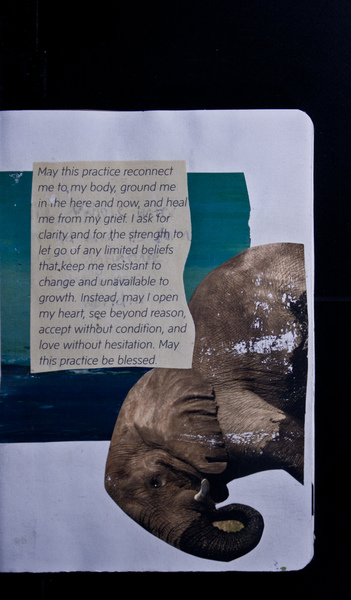 May this practice reconnect
me to my body, ground me
in the here and now, and heal
me from my grief. I ask for
clarity and for the strength to
let go of any limited beliefs
that keep me resistant to
change and unavailable to
growth. Instead, may I open
my heart, see beyond reason,
accept without condition, and
love without hesitation. May
this practice be blessed.